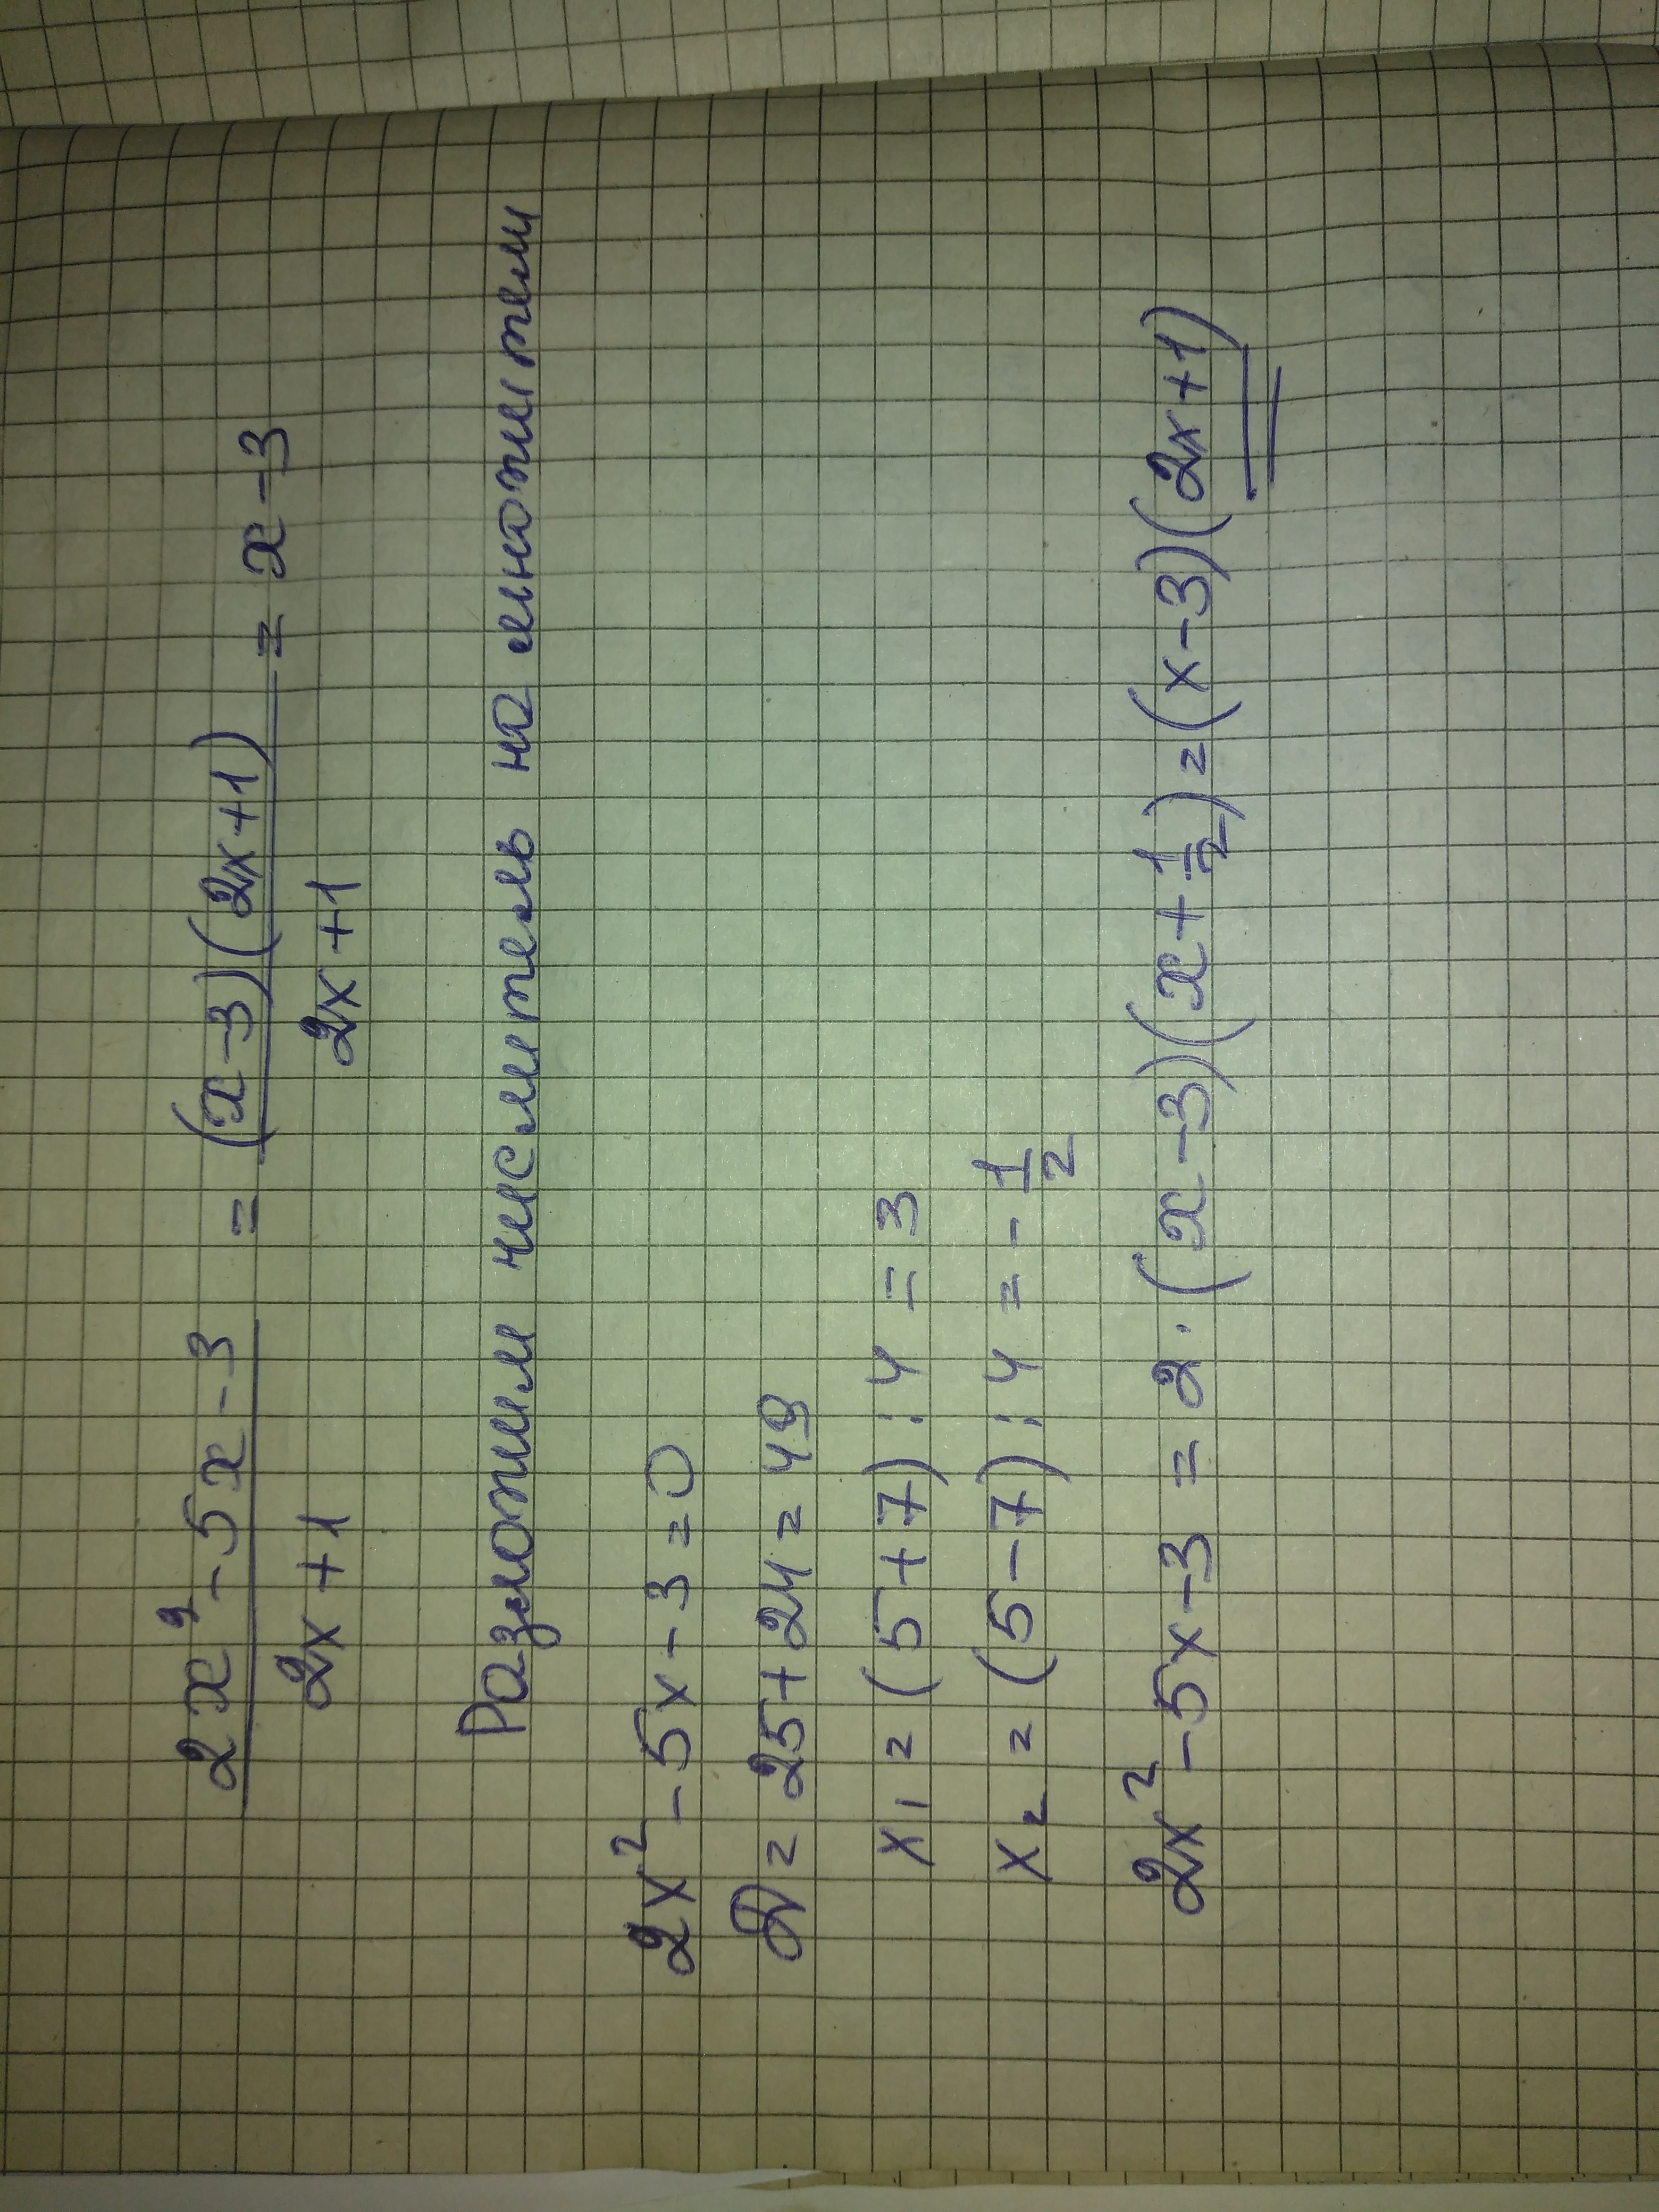 2x² - 5x - 3 / 2x + 1 = (x - 3)(2x + 1) / 2x + 1 = x - 3
Разложим числитель на множители
2x² - 5x - 3 = 0
D = 25 + 24 = 49
x₁ = (5 + 7) : 4 = 3
x₂ = (5 - 7) : 4 = - 1/2
2x² - 5x - 3 = 2 · (x - 3)(x + 1/2) = (x - 3)(2x + 1)